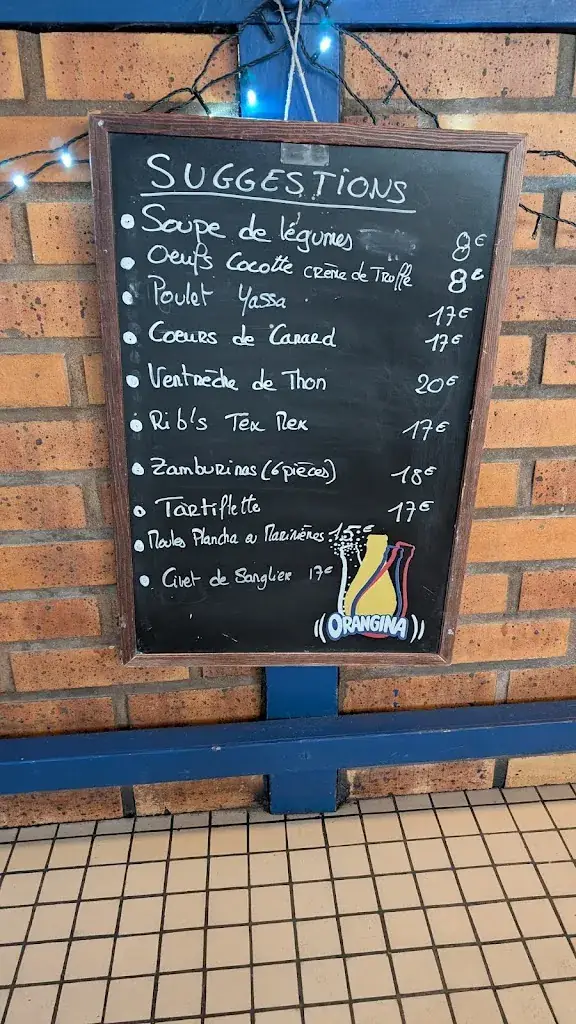 SUGGESTIONS
• Soupe de légumes 8€
• Oeufs Cocotte crème de Truffe 8€
• Poulet Yassa 17€
• Coeurs de Canard 17€
• Ventrèche de Thon 20€
• Rib's Tex Mex 17€
• Zamburinas (6 pièces) 18€
• Tartiflette 17€
• Moules Plancha ou Marinières 15€
• Civet de Sanglier 17€
ORANGINA